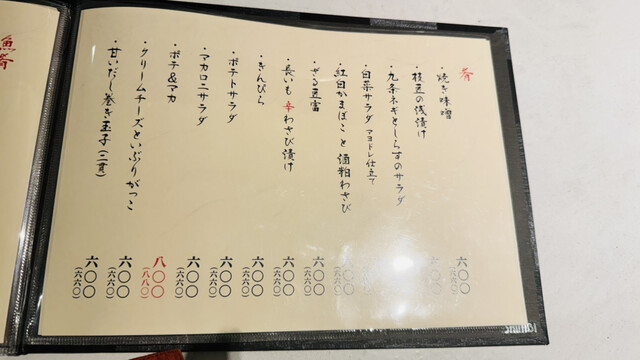 肴
・焼き味噌
六〇〇
(六六〇)
・枝豆の浅漬け
六〇〇
(六六〇)
・九条ネギとしらすのサラダ
・白菜サラダ マヨドレ仕立て
・紅白かまぼこと酒粕わさび
六〇〇
(六六〇)
・ざる豆富
六〇〇
(六六〇)
・長いも辛わさび漬け
六〇〇
(六六〇)
・きんぴら
六〇〇
(六六〇)
・ポテトサラダ
六〇〇
(六六〇)
・マカロニサラダ
六〇〇
(六六〇)
・ポテ&マカ
八〇〇
(八八〇)
・クリームチーズといぶりがっこ
六〇〇
(六六〇)
・甘いだし巻き玉子(二貫)
六〇〇
(六六〇)
魚肴